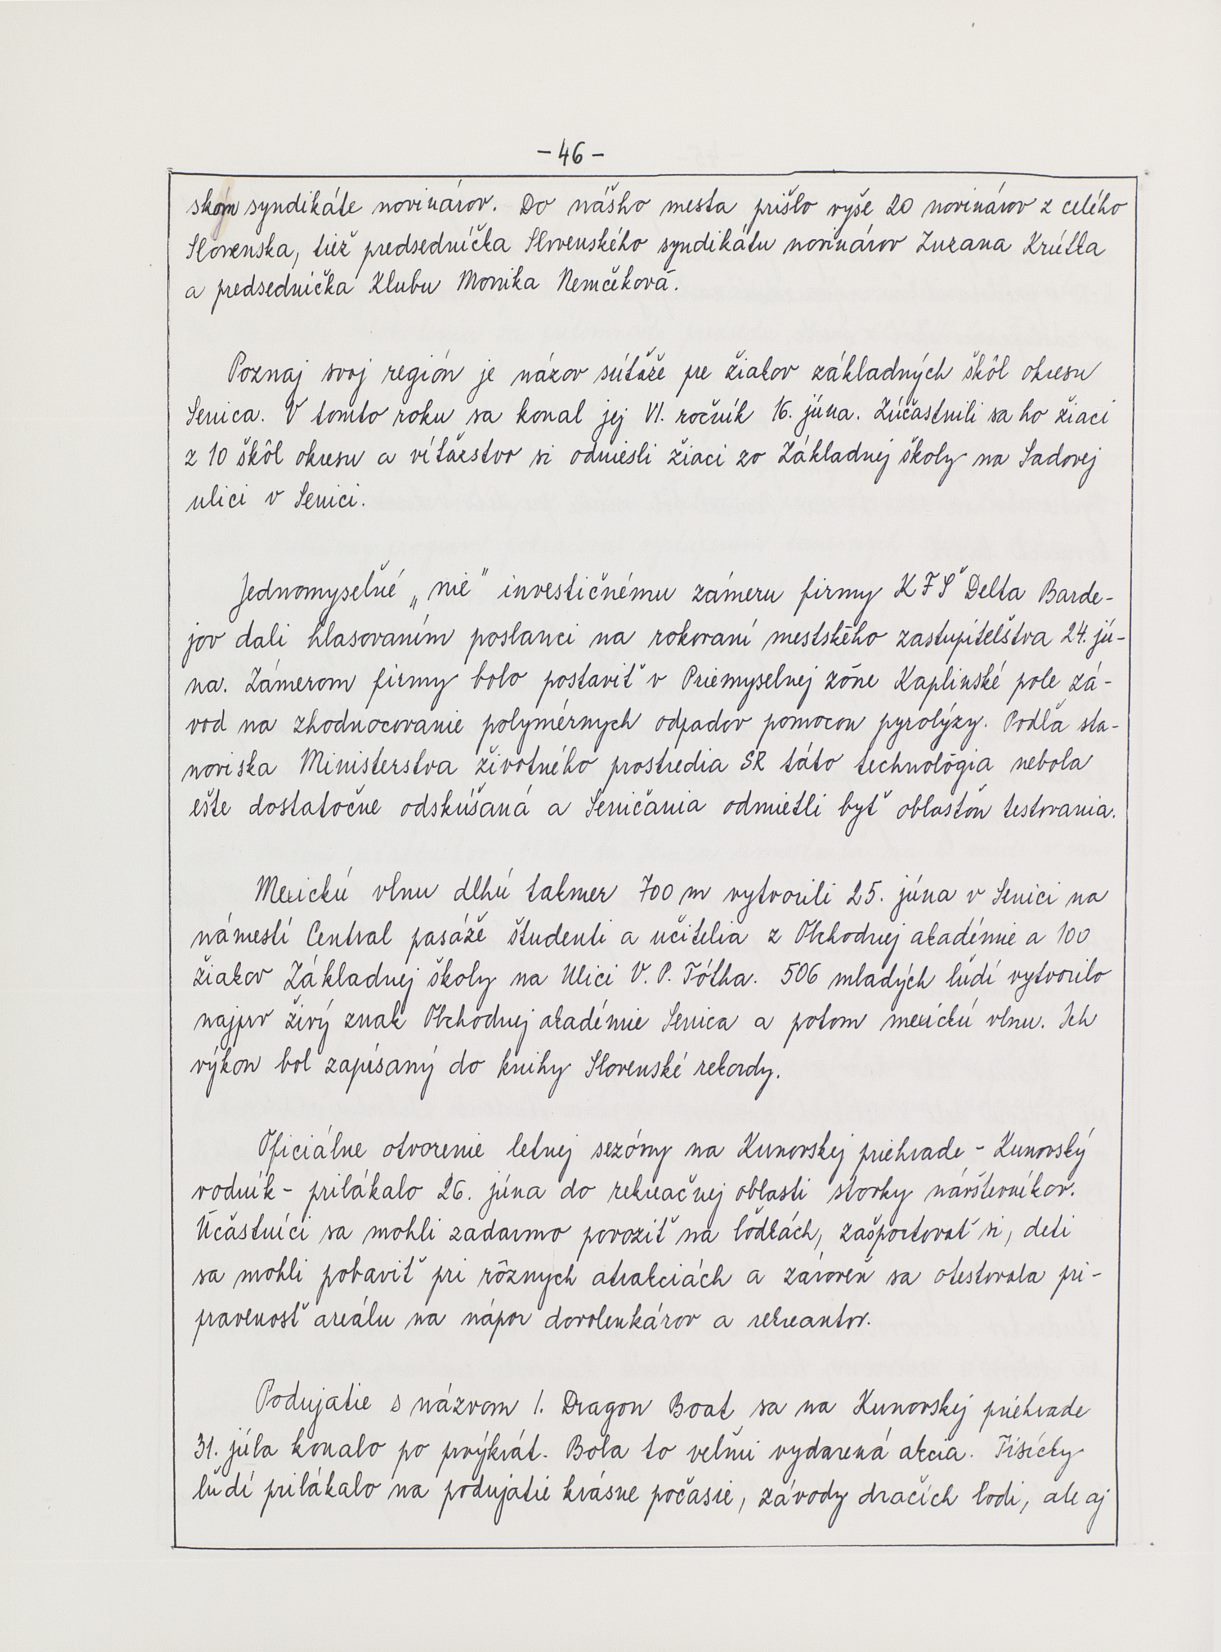 - 46 -
skom syndikáte novinárov. Do nášho mesta prišlo vyše 20 novinárov z celého
Slovenska, tiež predsedníčka Slovenského syndikátu novinárov Zuzana Krútka
a predsedníčka Klubu Monika Nemčeková.
Poznaj svoj región je názov súťaže pre žiakov základných škôl okresu
Senica. V tomto roku sa konal jej VI. ročník 16. júna. Zúčastnili sa ho žiaci
z 10 škôl okresu a víťazstvo si odniesli žiaci zo Základnej školy na Sadovej
ulici v Senici.
Jednomyseľné „nie" investičnému zámeru firmy KFŠ Delta Barde-
jov dali hlasovaním poslanci na rokovaní mestského zastupiteľstva 24. jú-
na. Zámerom firmy bolo postaviť v Priemyselnej zóne Kaplinské pole zá-
vod na zhodnocovanie polymérnych odpadov pomocou pyrolýzy. Podľa sta-
noviska Ministerstva životného prostredia SR táto technológia nebola
ešte dostatočne odskúšaná a Seničania odmietli byť oblasťou testovania.
Mexickú vlnu dlhú takmer 700 m vytvorili 25. júna v Senici na
námestí Central pasáže študenti a učitelia z Obchodnej akadémie a 100
žiakov Základnej školy na Ulici V. P. Tótha. 506 mladých ľudí vytvorilo
najprv živý znak Obchodnej akadémie Senica a potom mexickú vlnu. Ich
výkon bol zapísaný do knihy Slovenské rekordy.
Oficiálne otvorenie letnej sezóny na Kunovskej priehrade - Kunovský
vodník - prilákalo 26. júna do rekreačnej oblasti stovky návštevníkov.
Účastníci sa mohli zadarmo povoziť na loďkách, zašportovať si, deti
sa mohli pobaviť pri rôznych atrakciách a zároveň sa otestovala pri-
pravenosť areálu na nápor dovolenkárov a rekreantov.
Podujatie s názvom 1. Dragon Boat sa na Kunovskej priehrade
31. júla konalo po prvýkrát. Bola to veľmi vydarená akcia. Tisícky
ľudí prilákalo na podujatie krásne počasie, závody dračích lodí, ale aj